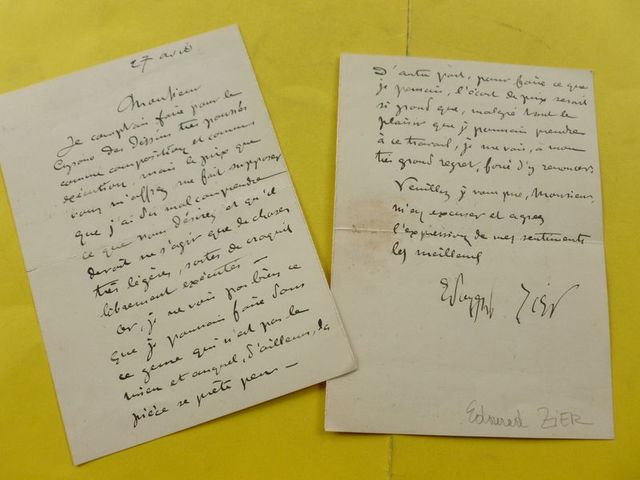 27 avril
Monsieur
Je comptais faire pour le
Cyrano des dessins très poussés
comme composition et comme
exécution, mais le prix que
vous m'offrez me fait supposer
que j'ai dû mal comprendre
ce que vous désirez et qu'il
devait ne s'agir que de choses
très légères, sortes de croquis
librement exécutés —
Or, je ne vois pas bien ce
que je pourrais faire dans
ce genre qui n'est pas le
mien et auquel, d'ailleurs, la
pièce se prête peu —
D'autre part, pour faire ce que
je pensais, l'écart de prix serait
si grand que, malgré tout le
plaisir que je pourrais prendre
à ce travail, je me vois, à mon
très grand regret, forcé d'y renoncer.
Veuillez, je vous prie, Monsieur,
m'en excuser et agréez
l'expression de mes sentiments
les meilleurs
Edouard Zier
Edouard ZIER